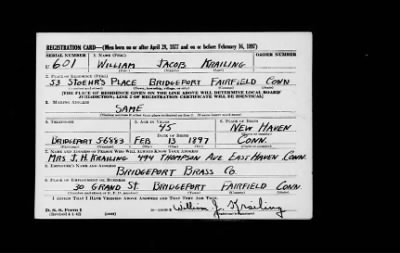 REGISTRATION CARD—(Men born on or after April 28, 1877 and on or before February 16, 1897)
SERIAL NUMBER 1. NAME (Print) ORDER NUMBER
U 601 WILLIAM JACOB KRAILING
(First) (Middle) (Last)
2. PLACE OF RESIDENCE (Print)
53 STOEHR'S PLACE BRIDGEPORT FAIRFIELD CONN
[THE PLACE OF RESIDENCE GIVEN ON THE LINE ABOVE WILL DETERMINE LOCAL BOARD
JURISDICTION; LINE 2 OF REGISTRATION CERTIFICATE WILL BE IDENTICAL]
3. MAILING ADDRESS
SAME
4. TELEPHONE 5. AGE IN YEARS 6. PLACE OF BIRTH
45 NEW HAVEN
DATE OF BIRTH
BRIDGEPORT 56883 FEB 13 1897 CONN.
7. NAME AND ADDRESS OF PERSON WHO WILL ALWAYS KNOW YOUR ADDRESS
MRS J. H. KRAILING 494 THOMPSON AVE EAST HAVEN CONN.
8. EMPLOYER'S NAME AND ADDRESS
BRIDGEPORT BRASS CO.
9. PLACE OF EMPLOYMENT OR BUSINESS
30 GRAND ST. BRIDGEPORT FAIRFIELD CONN.
I AFFIRM THAT I HAVE VERIFIED ABOVE ANSWERS AND THAT THEY ARE TRUE.
D. S. S. Form 1
(Revised 4-1-42) (over)
William J. Krailing